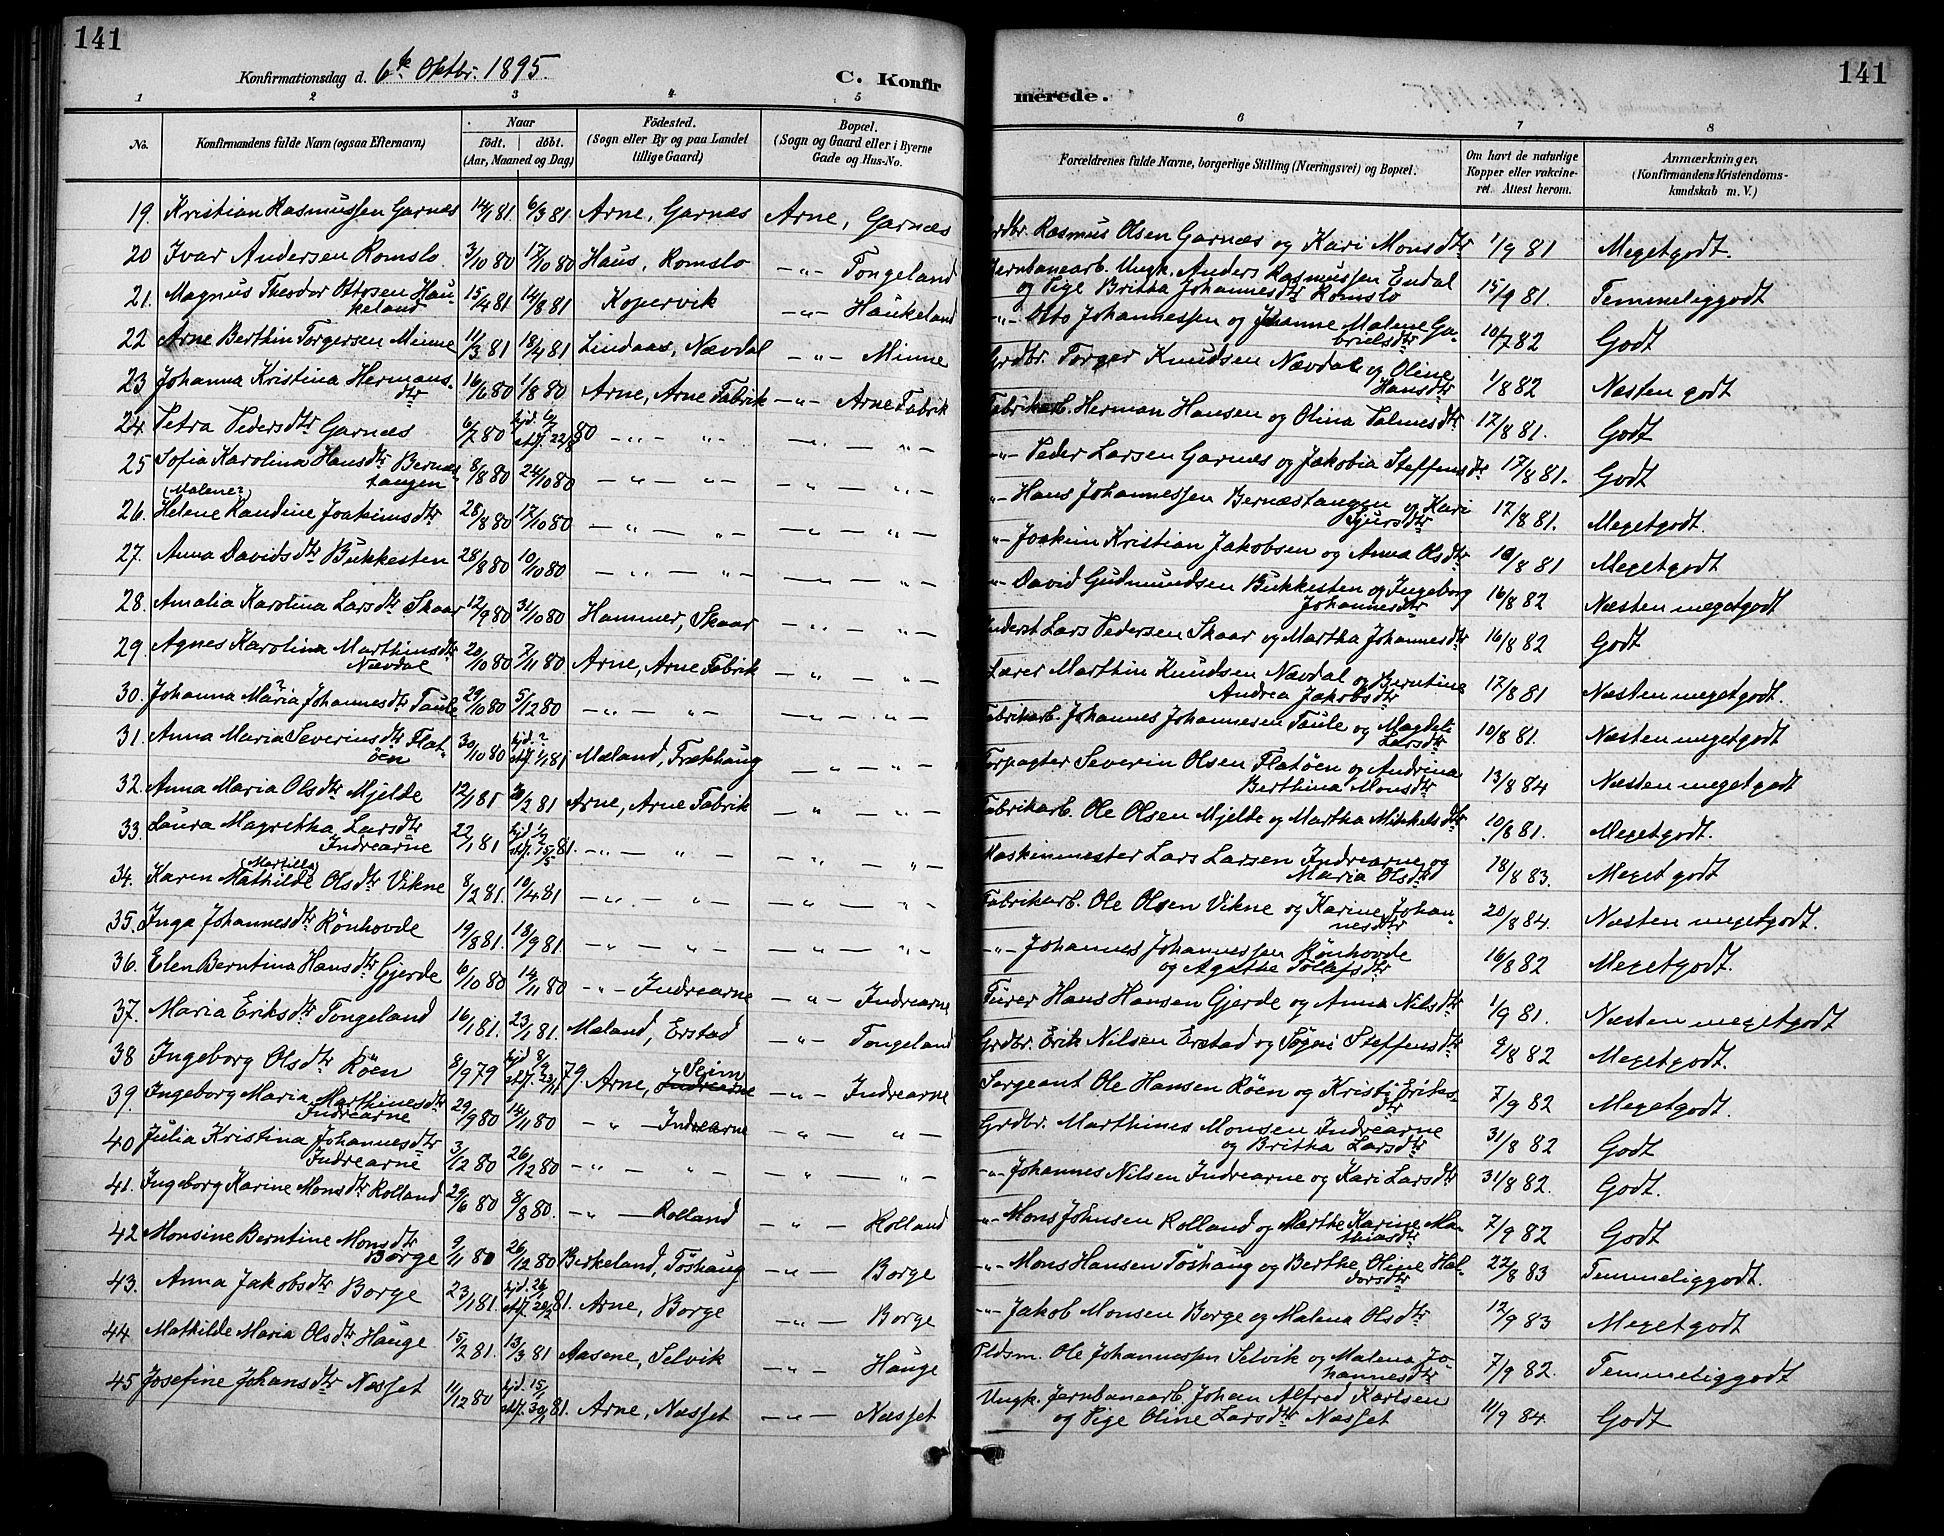 141
Konfirmationsdag d. 6te Oktbr. 1895.
C. Konfir
merede.
141
1 2 3 4 5 6 7 8
No. Konfirmandens fulde Navn (ogsaa Efternavn) Naar født. døbt. (Aar, Maaned og Dag) Födested. (Sogn eller By og paa Landet tillige Gaard) Bopæl. (Sogn og Gaard eller i Byerne Gade og Hus-No. Forældrenes fulde Navne, borgerlige Stilling (Næringsvei) og Bopæl. Om havt de naturlige Kopper eller vakcineret. Attest herom. Anmærkninger. (Konfirmandens Kristendomskundskab m. V.)
19. Kristian Rasmussen Garnæs 14/1 81. 6/3 81 Arne, Garnæs Arne, Garnæs Grdbr. Rasmus Olsen Garnæs og Kari Monsdtr 1/9 81 Megetgodt.
20 Ivar Andersen Romslo 3/10 80 17/10 80 Haus, Romslo -"- Tongeland Jernbanearb. Ungk. Anders Rasmussen Endal
og Pige Britta Johannesdtr Romslo 15/9 81. Temmeliggodt
21. Magnus Theodor Ottosen Hau-
keland 15/4 81 14/8 81 Kopervik -"- Haukeland -"- Otto Johannessen og Johanne Malene Ga-
brielsdtr 10/7 82 Godt
22 Arne Berthin Torgersen Minne 11/3 81 18/4 81 Lindaas, Nævdal -"- Minne Grdbr. Torger Knudsen Nævdal og Oline
Hansdtr 1/8 82 Næsten godt
23 Johanna Kristina Hermans-
dtr 16/6 80 1/8 80 Arne, Arne Fabrik -"- Arne Fabrik Fabrikarb. Herman Hansen og Olina Salmesdtr 17/8 81. Godt
24. Petra Pedersdtr Garnæs 6/7 80 hjd. 6/7 stf. 22/8 80 -"- "- -"- "- -"- Peder Larsen Garnæs og Jakobia Steffensdtr 17/8 81. Godt
25 Sofia Karolina Hansdtr Bernæs-
tangen 8/8 80 24/10 80 -"- "- -"- "- -"- Hans Johannessen Bernæstangen og Kari
Sjursdtr 17/8 81. Megetgodt.
(Malene?)
26. Helene Randine Joakimsdtr 28/8 80 17/10 80 -"- "- -"- "- -"- Joakim Kristian Jakobsen og Anna Olsdtr 10/8 81 Megetgodt
27. Anna Davidsdtr Bukkesten 28/8 80 10/10 80 -"- "- -"- "- -"- David Gudmundsen Bukkesten og Ingeborg
Johannesdtr 16/8 82 Næsten megetgodt
28. Amalia Karolina Larsdtr Skaar 12/9 80 31/10 80 Hammer, Skaar -"- "- Inderst Lars Pedersen Skaar og Martha Johannesdtr 16/8 82 Godt
29 Agnes Karolina Marthinsdtr
Nævdal 20/10 80 7/11 80 Arne, Arne Fabrik -"- "- Lærer Marthin Knudsen Nævdal og Berntine
Andrea Jakobsdtr 17/8 81 Næsten megetgodt.
30. Johanna Maria? Johannesdtr Taule 29/10 80 5/12 80 -"- "- -"- "- Fabrikarb. Johannes Johannesen Taule og Magdeli
Larsdtr 10/8 81. Næsten megetgodt
31. Anna Maria Severinsdtr Flat-
öen 30/10 80 hjd. ? stf. 1/1 81 Mæland, Frækhaug -"- "- Forpagter Severin Olsen Flatöen og Andrina
Berthina Monsdtr 13/8 84 Næsten megetgodt
32. Anna Maria Olsdtr Mjelde 12/1 81 20/2 81 Arne, Arne Fabrik -"- "- Fabrikarb. Ole Olsen Mjelde og Martha Mikkelsdtr 10/8 81. Megetgodt.
33. Laura Magretha Larsdtr
Indrearne 22/1 81 stf. 15/5 81. -"- "- -"- "- Maskinmester Lars Larsen Indrearne og
Maria Olsdtr 18/8 83. Megetgodt
34. Karen Mathilde (Martilla) Olsdtr Vikne 8/2 81. 10/4 81 -"- "- -"- "- Fabrikarb. Ole Olsen Vikne og Karine Johan-
nesdtr 20/8 84. Næsten megetgodt.
35. Inga Johannesdtr Rönhovde 19/8 81. 18/9 81 -"- "- -"- "- -"- Johannes Johannessen Rönhovde
og Agathe Tollefsdtr 16/8 82 Megetgodt.
36. Elen Berntina Hansdtr Gjerde 6/10 80 14/11 80 -"- Indrearne -"- Indrearne Furer Hans Hansen Gjerde og Anna Nilsdtr 1/9 81. Næsten megetgodt
37. Maria Eriksdtr Tongeland 16/1 81. 23/1 81. Mæland, Erstad -"- Tongeland Grdbr. Erik Nilsen Erstad og Sögni Steffensdtr 9/8 82 Megetgodt.
38 Ingeborg Olsdtr Röen 8/9 79 hjd. 8/9 stf. 23/11 79. Arne, Indrearne Seim -"- Indrearne Sergeant Ole Hansen Röen og Kristi Eriks-
dtr 7/9 82 Megetgodt.
39. Ingeborg Maria Marthinesdtr
Indrearne 29/9 80 14/11 80 -"- Indrearne -"- "- Grdbr. Marthines Monsen Indrearne
og Britha Larsdtr 31/8 82 Godt
40 Julia Kristina Johannesdtr
Indrearne 3/12 80 26/12 80 -"- "- -"- "- -"- Johannes Nilsen Indrearne og Kari Larsdtr 31/8 82. Godt.
41. Ingeborg Karine Monsdtr Rolland 29/6 80 8/8 80. -"- Rolland -"- Rolland -"- Mons Johnsen Rolland og Marthe Karine Ma-
thiasdtr 7/9 82 Godt
42 Monsine Berntine Monsdtr
Borge 9/11 80 26/12 80 Birkeland, Töshaug -"- Borge -"- Mons Hansen Töshaug og Berthe Oline Hal-
dorsdtr 22/8 83 Temmeliggodt.
43. Anna Jakobsdtr Borge 23/1 81. hjd. 26/1 stf. 20/2 81. Arne, Borge -"- Borge -"- Jakob Monsen Borge og Malena Olsdtr 12/9 83 Megetgodt
44 Mathilde Maria Olsdtr Hauge 15/2 81. 13/3 81 Aasene, Selvik -"- Hauge Pldsm. Ole Johannessen Selvik og Malena Jo-
hannesdtr 7/9 82. Temmeliggodt
45 Josefine Johansdtr Næsset 11/12 80 hjd. 15/1 stf. 30/1 81. Arne, Næsset -"- Næsset Ungk. Jernbanearb. Johan Alfred Karlsen
og Pige Oline Larsdtr Næsset 11/9 84. Godt